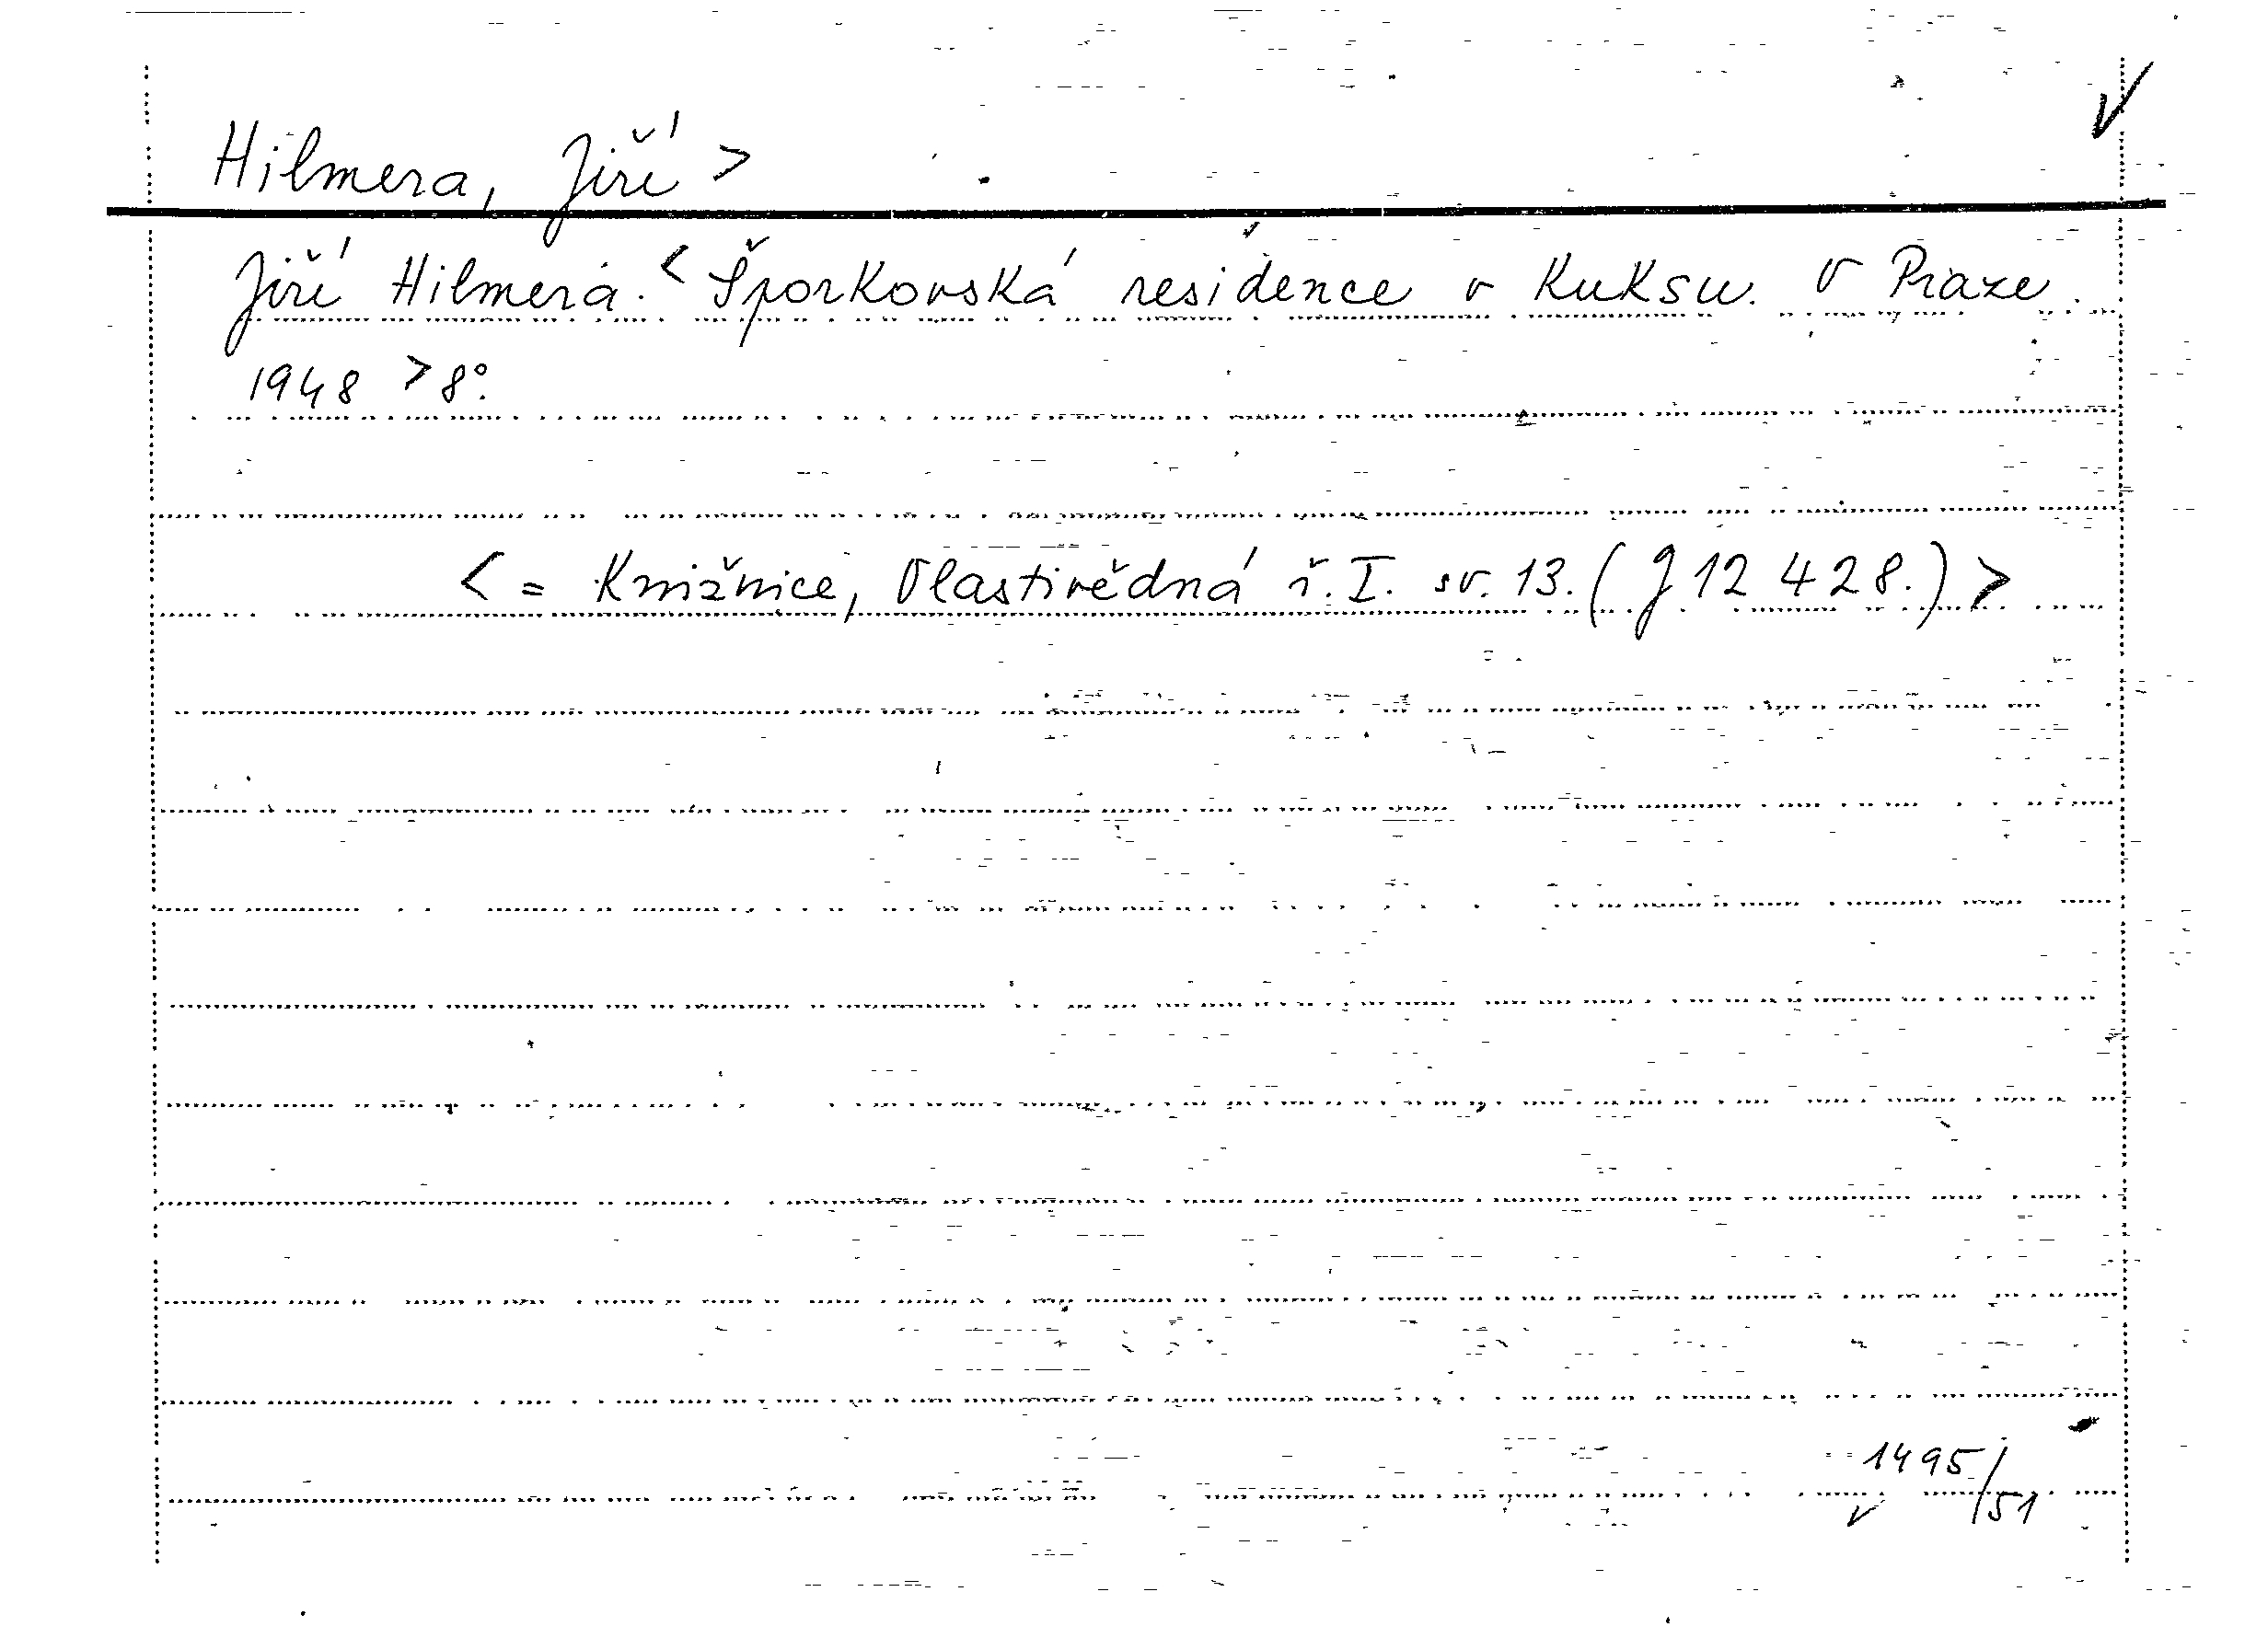 Hilmera, Jiří >
Jiří Hilmera. < Šporkovská residence v Kuksu. V Praze.
1948 > 8°.
< = Knižnice, Vlastivědná ř. I. sv. 13. (J 12 428.) >
1495/51